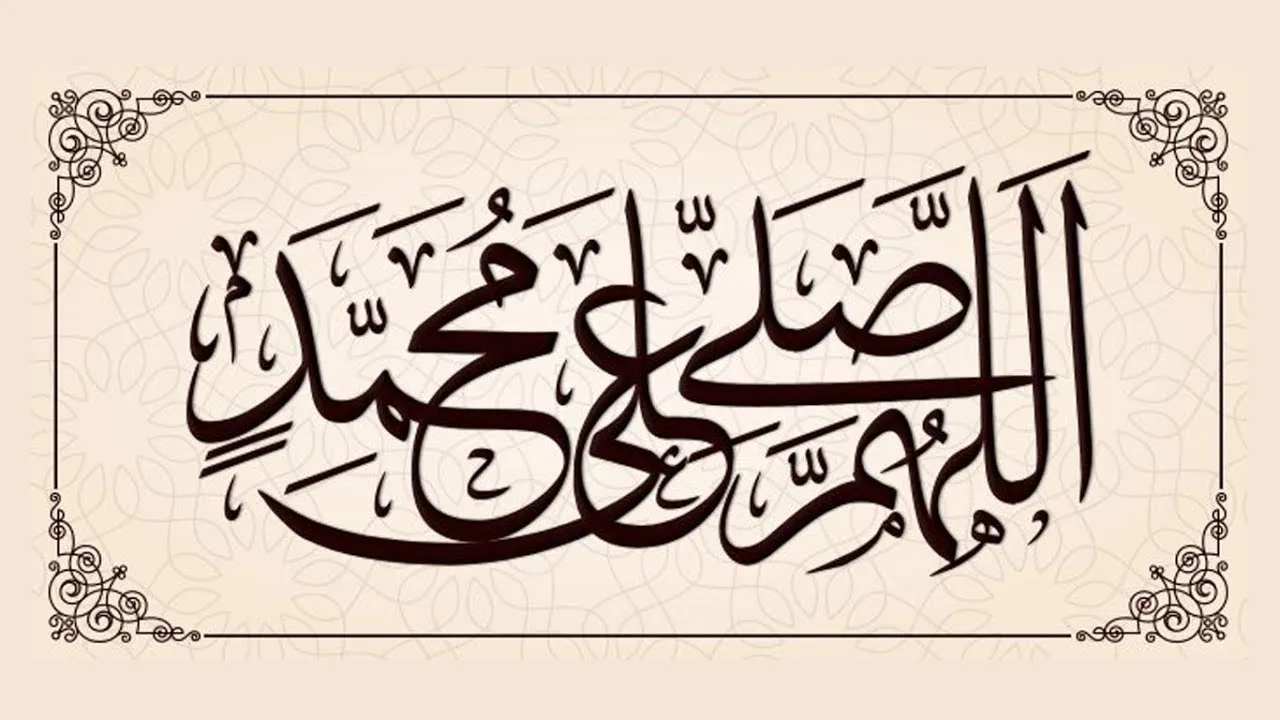 اَللّٰهُمَّ صَلِّ عَلَى مُحَمَّدٍ